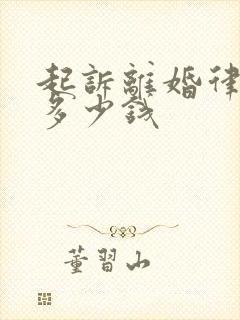 起訴離婚律
多少錢
董習山